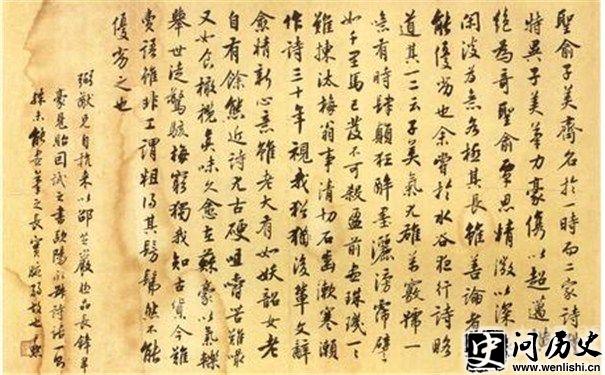 聖俞子美齊名於一時而二家詩
特異子美筆力豪雋以超邁
絕為奇聖俞覃思精微以深
閑淡為意各極其長雖善論者
能優劣也余嘗於水谷夜行詩略
道其一二云子美氣尤雄萬竅號一
噫有時肆顛狂醉墨灑滂霈譬
如千里馬已發不可殺盈前盡珠璣一一
難揀汰梅翁事清切石齒漱寒瀨
作詩三十年視我猶猶後輩文辭
愈精新心意雖老大有如妖韶女老
自有餘態近詩尤古硬咀嚼苦難嘬
又如食橄欖真味久愈在蘇豪以氣轢
舉世徒驚駭梅窮獨我知古貨今難
賣語雖非工謂粗得其髣髴然不能
優劣之也
弼猷兄自杭來以邵芝巖極品長鋒羊
毫見貽因試之書歐陽永叔詩話一節
殊未能盡筆之長實腕弱故也尹默
史问历史
www.wenlishi.cn